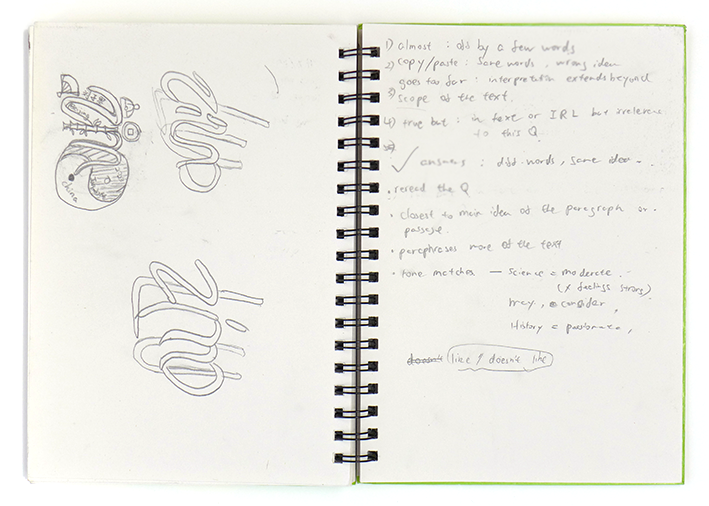 china
1) almost : off by a few words
2) copy/paste : same words, wrong idea
3) goes too far : interpretation extends beyond
scope of the text.
4) true but : in text or IRL but irrelevant
to this Q.
✓ answers : diff words, same idea.
• reread the Q
• closest to main idea of the paragraph or
passage.
• paraphrases more of the text
• tone matches — science = moderate.
(✗ feelings strong)
may, consider,
History = passionate,
doesn't like / doesn't like